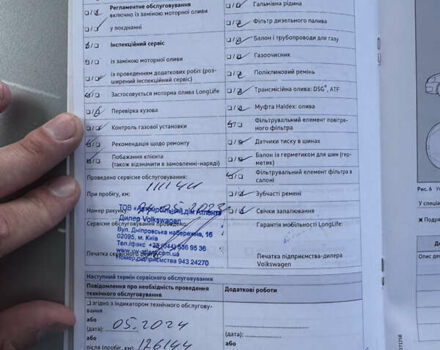 Регламентне обслуговування
включно із заміною моторної оливи
у поєднанні
Інспекційний сервіс
із заміною моторної оливи
із проведенням додаткових робіт (роз-
ширений інспекційний сервіс)
Застосовується моторна олива LongLife
Перевірка кузова
Контроль газової установки
Рекомендація щодо ремонту
Побажання клієнта
(також відзначити в замовленні-наряді)
Проведено сервісне обслуговування:
При пробігу, км:
Номер рахунку:
Сервісне обслуговування проведено:
ТОВ
Дилер Volkswagen
Вул. Дніпровська набережна, 16
02095, м. Київ
Печатка
Номер підприємства 943 24270
Наступний термін сервісного обслуговування
Повідомлення про необхідність проведення
технічного обслуговування
згідно з індикатором технічного обслугову-
вання
або
(дата): 05.2024
або
після (пробіг, км): 126144
Гальмівна рідина
Фільтр дизельного палива
Балон і трубопроводи для газу
Газоочисник
Полікліновий ремінь
Трансмісійна олива: DSG®, ATF
Муфта Haldex: олива
Фільтрувальний елемент повітря-
ного фільтра
Датчики тиску в шинах
Балон із герметиком для шин (гер-
метик)
Фільтрувальний елемент фільтра в
салоні
Зубчасті ремені
Свічки запалювання
Гарантія мобільності LongLife:
Печатка підприємства-дилера
Volkswagen
Додаткові роботи
Рис. 6
У спеці